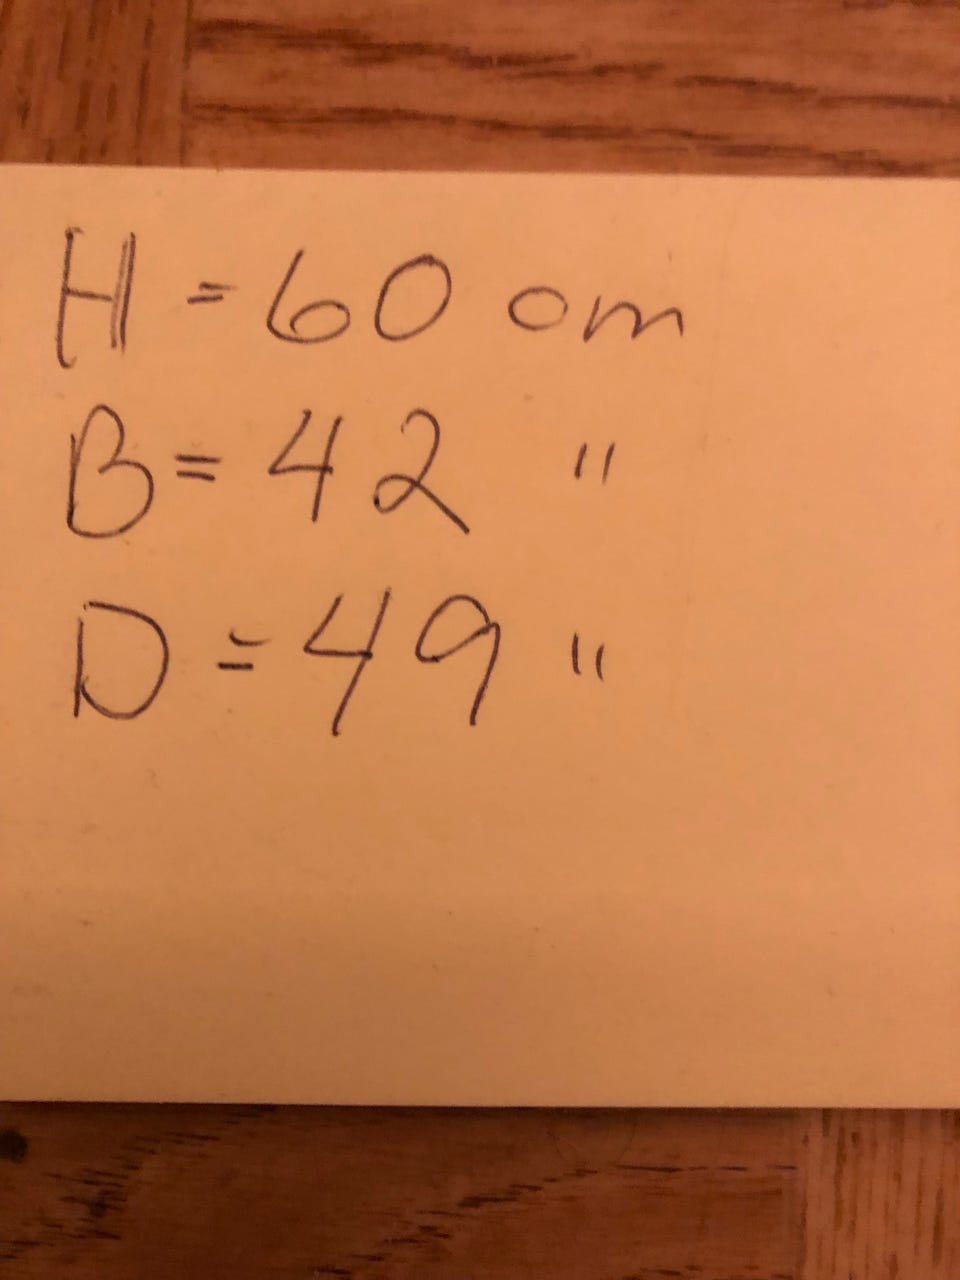 H = 60 cm
B = 42 "
D = 49 "